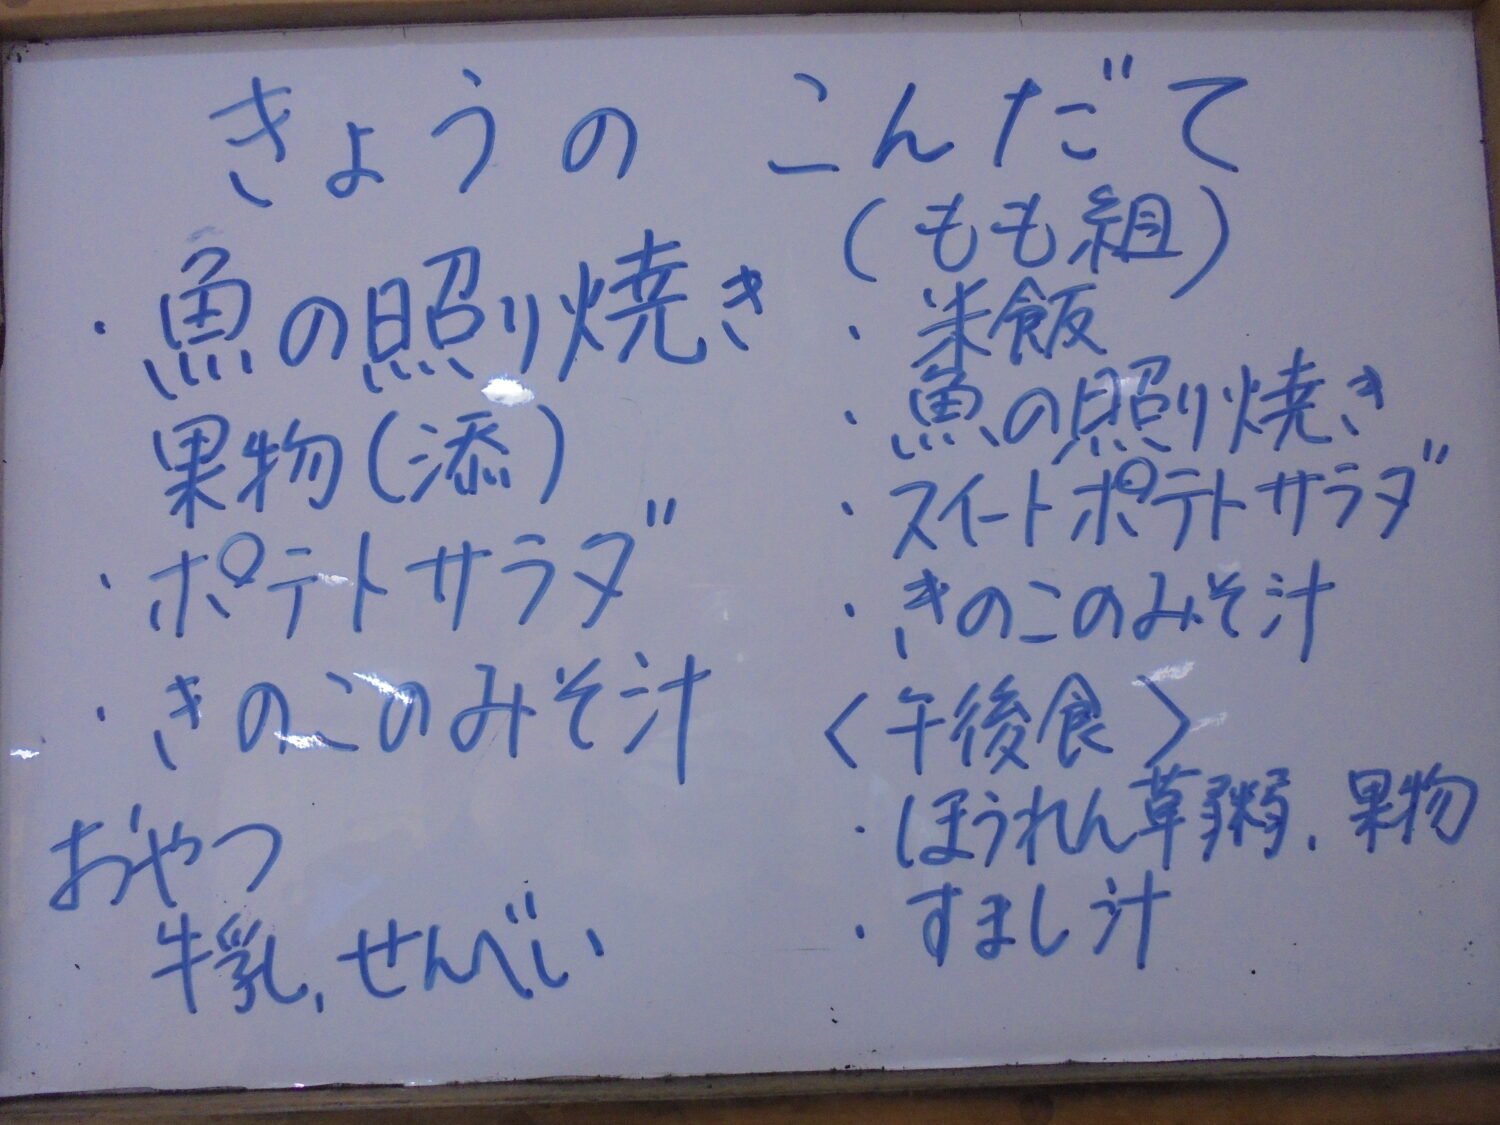 きょうの こんだて
・魚の照り焼き
果物(添)
・ポテトサラダ
・きのこのみそ汁
おやつ
牛乳、せんべい
(もも組)
・米飯
・魚の照り焼き
・スイートポテトサラダ
・きのこのみそ汁
〈午後食〉
・ほうれん草粥、果物
・すまし汁